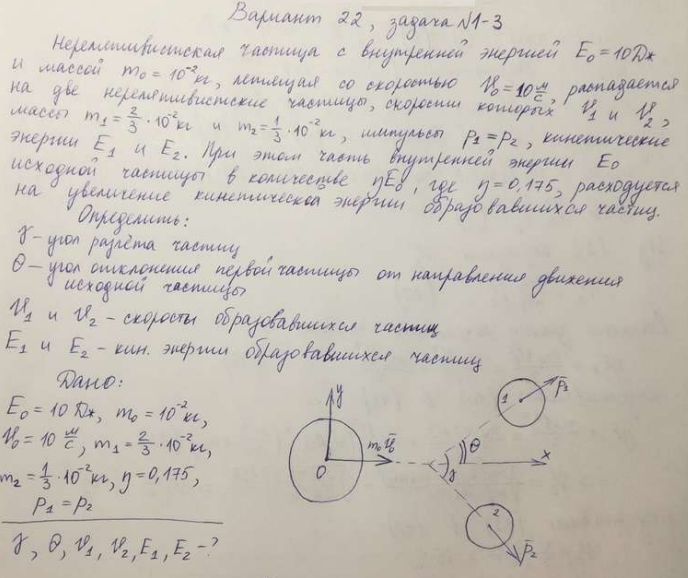 Вариант 22, задача №1-3
Нерелятивистская частица с внутренней энергией E₀ = 10 Дж
и массой m₀ = 10⁻² кг, летящая со скоростью V₀ = 10 м/с, распадается
на две нерелятивистские частицы, скорости которых V₁ и V₂,
массы m₁ = 2/3 · 10⁻² кг и m₂ = 1/3 · 10⁻² кг, импульсы p₁ = p₂, кинетические
энергии E₁ и E₂. При этом часть внутренней энергии E₀
исходной частицы в количестве ηE₀, где η = 0,175, расходуется
на увеличение кинетической энергии образовавшихся частиц.
Определить:
γ – угол разлёта частиц
θ – угол отклонения первой частицы от направления движения
исходной частицы
V₁ и V₂ – скорости образовавшихся частиц
E₁ и E₂ – кин. энергии образовавшихся частиц
Дано:
E₀ = 10 Дж, m₀ = 10⁻² кг,
V₀ = 10 м/с, m₁ = 2/3 · 10⁻² кг,
m₂ = 1/3 · 10⁻² кг, η = 0,175,
p₁ = p₂
γ, θ, V₁, V₂, E₁, E₂ – ?
y
O
m₀V̄₀
1
p̄₁
θ
γ
x
2
p̄₂